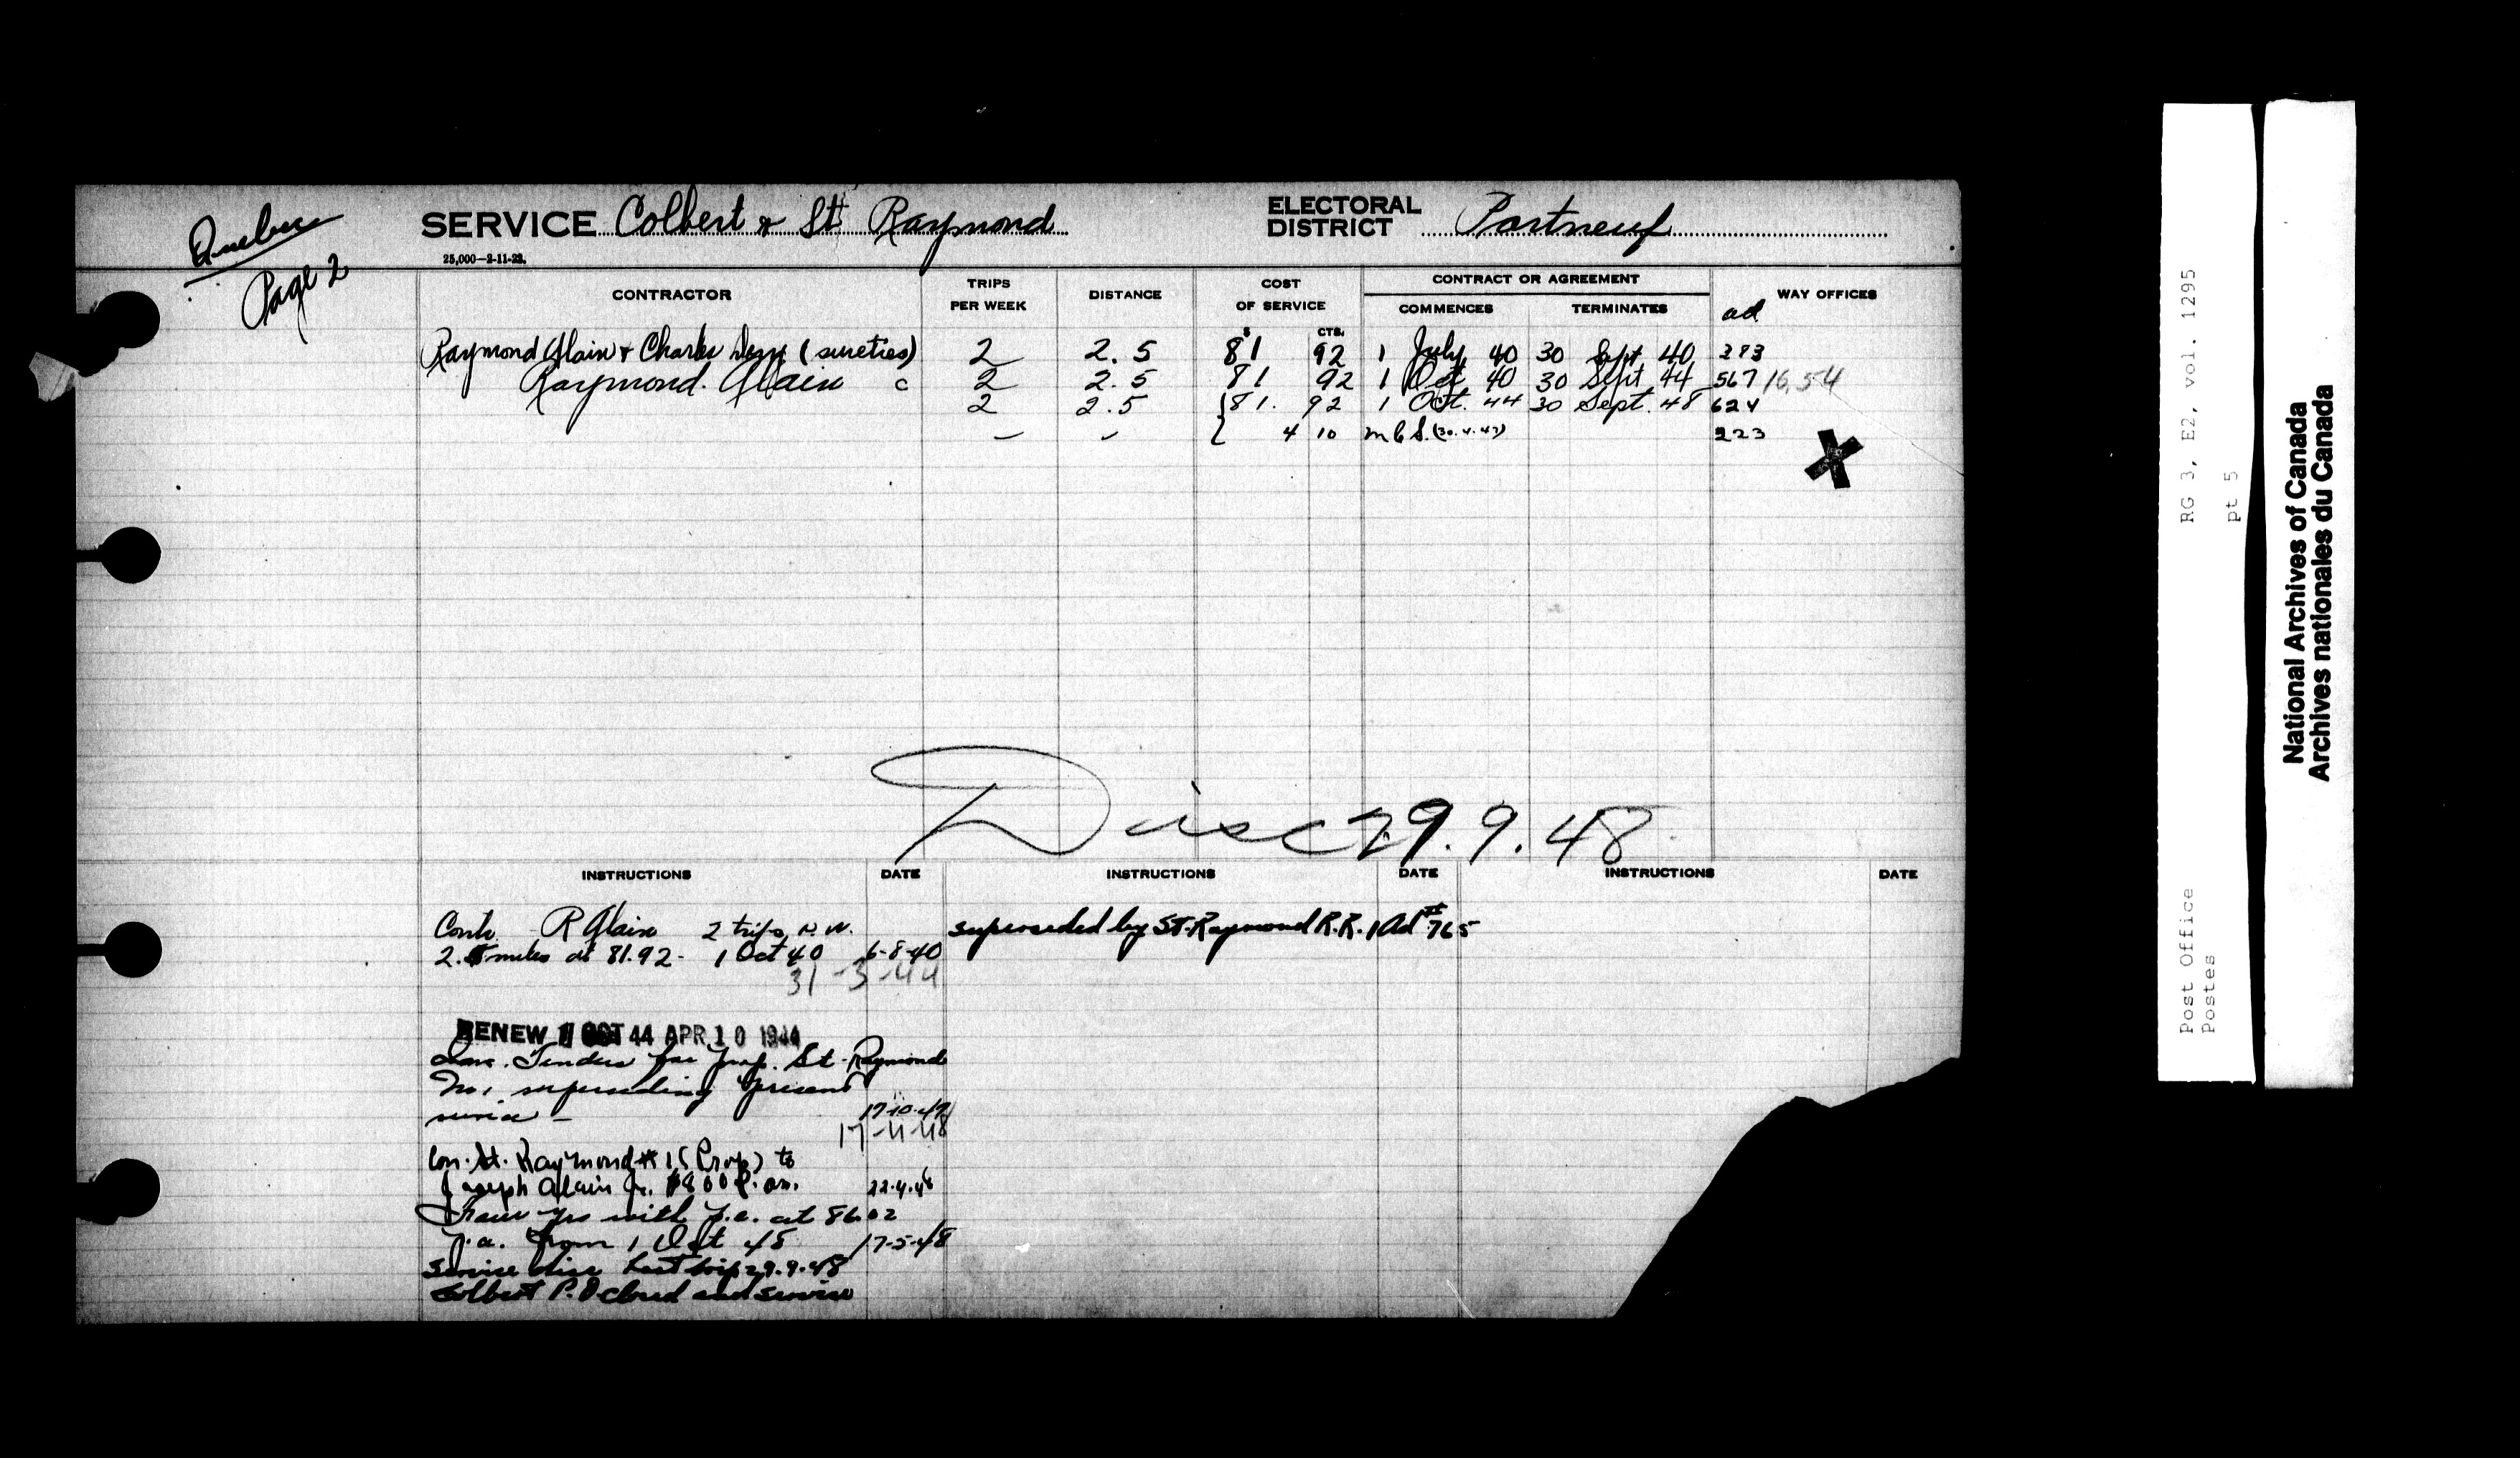 Quebec
Page 2
SERVICE Colbert & St Raymond
ELECTORAL DISTRICT Portneuf
25,000—2-11-23.
CONTRACTOR TRIPS PER WEEK DISTANCE COST OF SERVICE CONTRACT OR AGREEMENT COMMENCES TERMINATES WAY OFFICES
ad
$ CTS.
Raymond Alain & Charles (sureties) 2 2.5 81 92 1 July 40 30 Sept. 40 283
Raymond Alain c 2 2.5 81 92 1 Oct 40 30 Sept 44 567 16,54
2 2.5 81. 92 1 Oct. 44 30 Sept. 48 624
— — 4 10 m C S. (30.4.47) 223
X
Disc 29.9.48
INSTRUCTIONS DATE INSTRUCTIONS DATE INSTRUCTIONS DATE
Contr R Alain 2 trips p. w.
2.5 miles at 81.92 - 1 Oct 40 6-8-40
31-3-44
RENEW 1 OCT 44 APR 10 1944
Tenders for prop. St-Raymond
No 1 superseding present
service — 17-10-47
17-4-48
Con. St. Raymond #1 (Prop) to
Joseph Alain Jr. $800 p. an. 22.4.48
Four yrs with p.a. at 86.02
p.a. from 1 Oct 48 17-5-48
Service disc last trip 29.9.48
Colbert P.O closed and service
superseded by St-Raymond R.R. 1 Ad # 765
RG 3, E2, vol. 1295
pt 5
Post Office
Postes
National Archives of Canada
Archives nationales du Canada